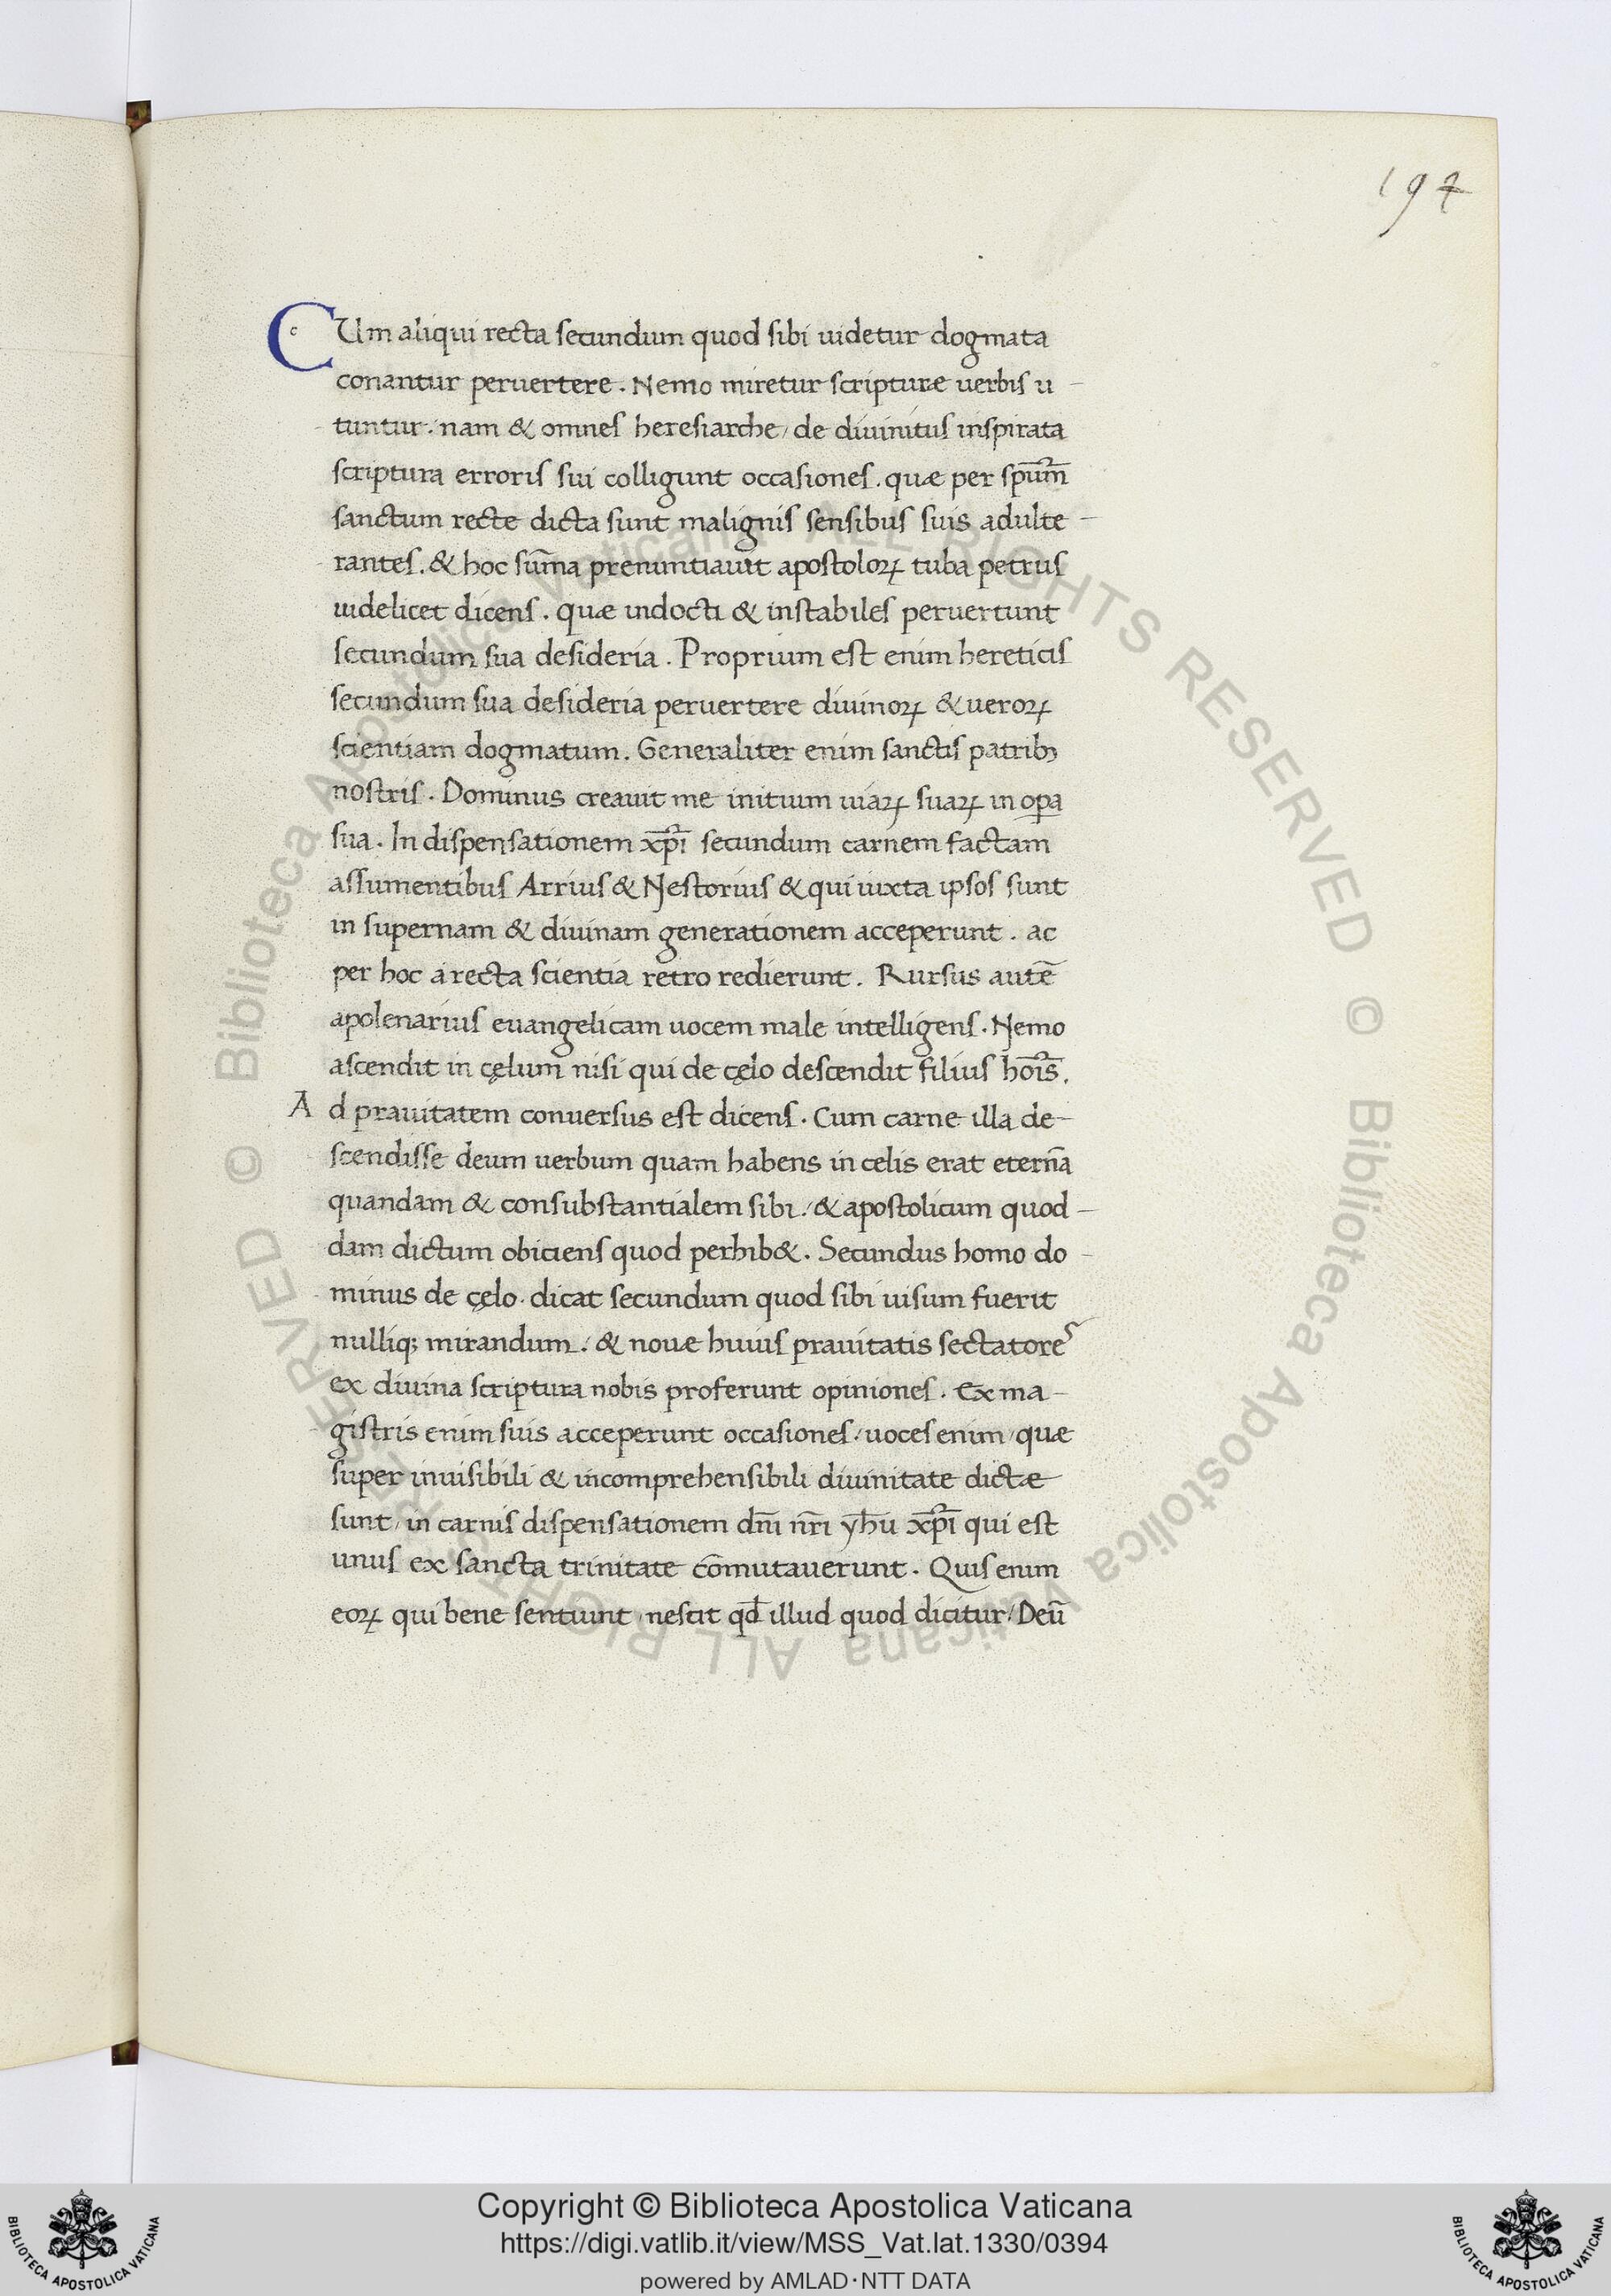 194
CUm aliqui recta secundum quod sibi uidetur dogmata
conantur peruertere. Nemo miretur scripturæ uerbis u-
tuntur. nam & omnes heresiarche, de diuinitus inspirata
scriptura erroris sui colligunt occasiones. quæ per sp̄um̄
sanctum recte dicta sunt malignis sensibus suis adulte-
rantes. & hoc sūma prenuntiauit apostoloꝝ tuba petrus
uidelicet dicens. quæ indocti & instabiles peruertunt
secundum sua desideria. Proprium est enim hereticis
secundum sua desideria peruertere diuinoꝝ & ueroꝝ
scientiam dogmatum. Generaliter enim sanctis patribꝫ
nostris. Dominus creauit me initium uiaꝝ suaꝝ in oꝑa
sua. In dispensationem xp̄ī secundum carnem factam
assumentibus Arrius & Nestorius & qui iuxta ipsos sunt
in supernam & diuinam generationem acceperunt. ac
per hoc a recta scientia retro redierunt. Rursus autē
apolenarius euangelicam uocem male intelligens. Nemo
ascendit in cęlum nisi qui de cęlo descendit filius hōis̄.
Ad prauitatem conuersus est dicens. Cum carne illa de-
scendisse deum uerbum quam habens in celis erat eternā
quandam & consubstantialem sibi. & apostolicum quod-
dam dictum obiciens quod perhib&. Secundus homo do-
minus de cęlo. dicat secundum quod sibi uisum fuerit
nulliq; mirandum. & nouæ huius prauitatis sectatores
ex diuina scriptura nobis proferunt opiniones. Ex ma-
gistris enim suis acceperunt occasiones, uoces enim, quæ
super inuisibili & incomprehensibili diuinitate dictæ
sunt, in carnis dispensationem dn̄i nr̄i yh̄u xp̄ī qui est
unus ex sancta trinitate cōmutauerunt. Quis enim
eoꝝ qui bene sentiunt, nescit qd̄ illud quod dicitur, Deū
Copyright © Biblioteca Apostolica Vaticana
https://digi.vatlib.it/view/MSS_Vat.lat.1330/0394
powered by AMLAD·NTT DATA